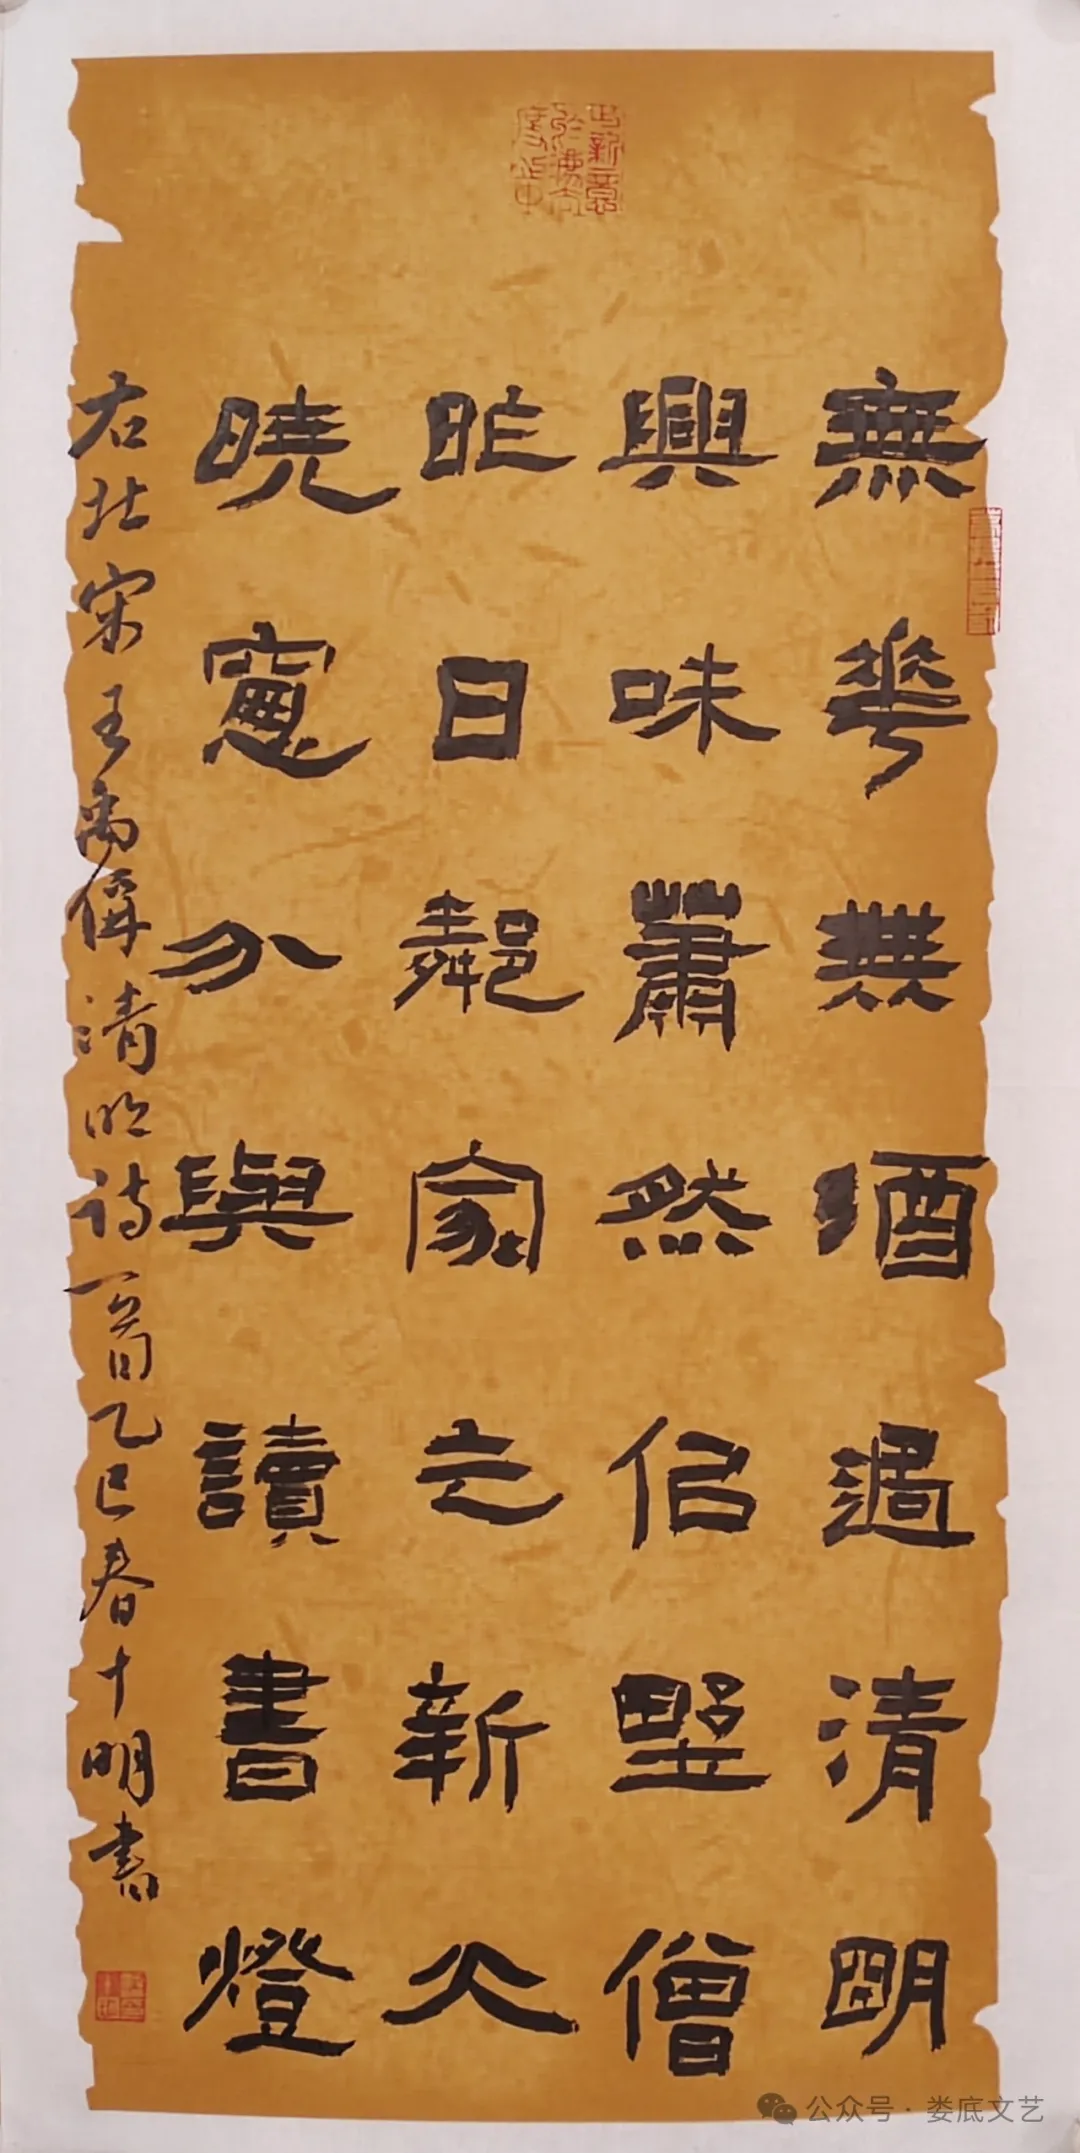 出新意於灋度之中
無華無酒過清明
興味蕭然佀野僧
昨日鄰家乞新火
曉窻分與讀書燈
右北宋王禹偁清明詩一首乙巳春十明書
公众号 · 娄底文艺